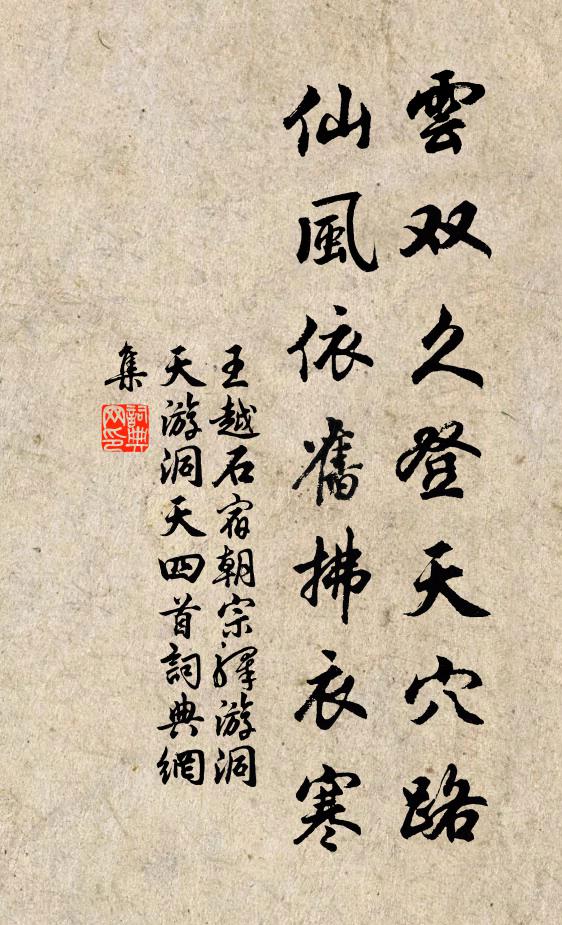 雲双久登天穴路
仙風依舊拂衣寒
王越石宿朝宗驛游洞
天游洞天四首詞典網
集
詞典網印